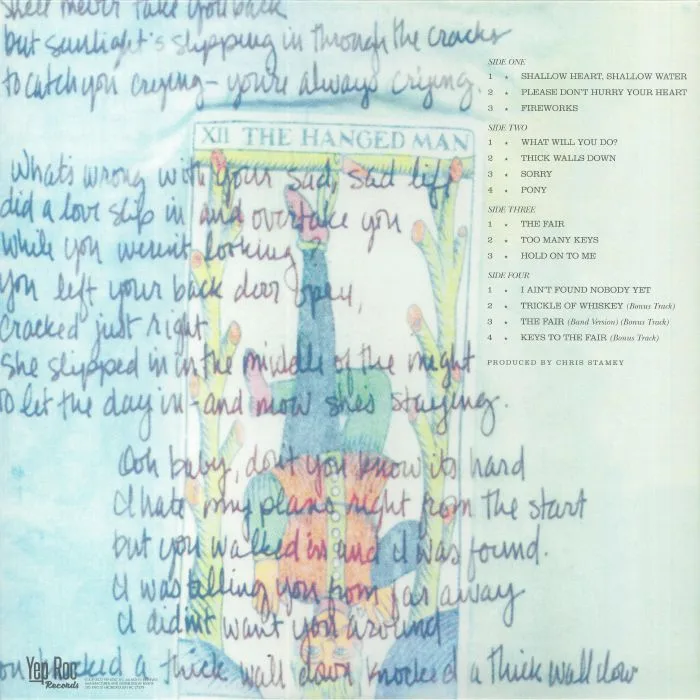 She'll never take you back
but sunlight's slipping in through the cracks
to catch you crying - you're always crying.
XII THE HANGED MAN
What's wrong with your sad, sad life
did a love slip in and overtake you
while you weren't looking?
You left your back door open,
cracked just right
she slipped in in the middle of the night
to let the day in - and now she's staying.
Ooh baby, don't you know its hard
I hate my plans right from the start
but you walked in and I was found.
I was telling you from far away
I didn't want you around
knocked a thick wall down knocked a thick wall dow
SIDE ONE
1 • SHALLOW HEART, SHALLOW WATER
2 • PLEASE DON'T HURRY YOUR HEART
3 • FIREWORKS
SIDE TWO
1 • WHAT WILL YOU DO?
2 • THICK WALLS DOWN
3 • SORRY
4 • PONY
SIDE THREE
1 • THE FAIR
2 • TOO MANY KEYS
3 • HOLD ON TO ME
SIDE FOUR
1 • I AIN'T FOUND NOBODY YET
2 • TRICKLE OF WHISKEY (Bonus Track)
3 • THE FAIR (Band Version) (Bonus Track)
4 • KEYS TO THE FAIR (Bonus Track)
PRODUCED BY CHRIS STAMEY
Yep Roc
Records